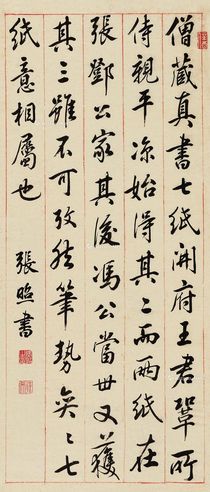 僧藏真書七紙開府王君鞏所
侍親平凉始得其二而兩紙在
張鄧公家其後馮公當世又獲
其三雖不可攷然筆勢奕〻七
紙意相屬也
張照書